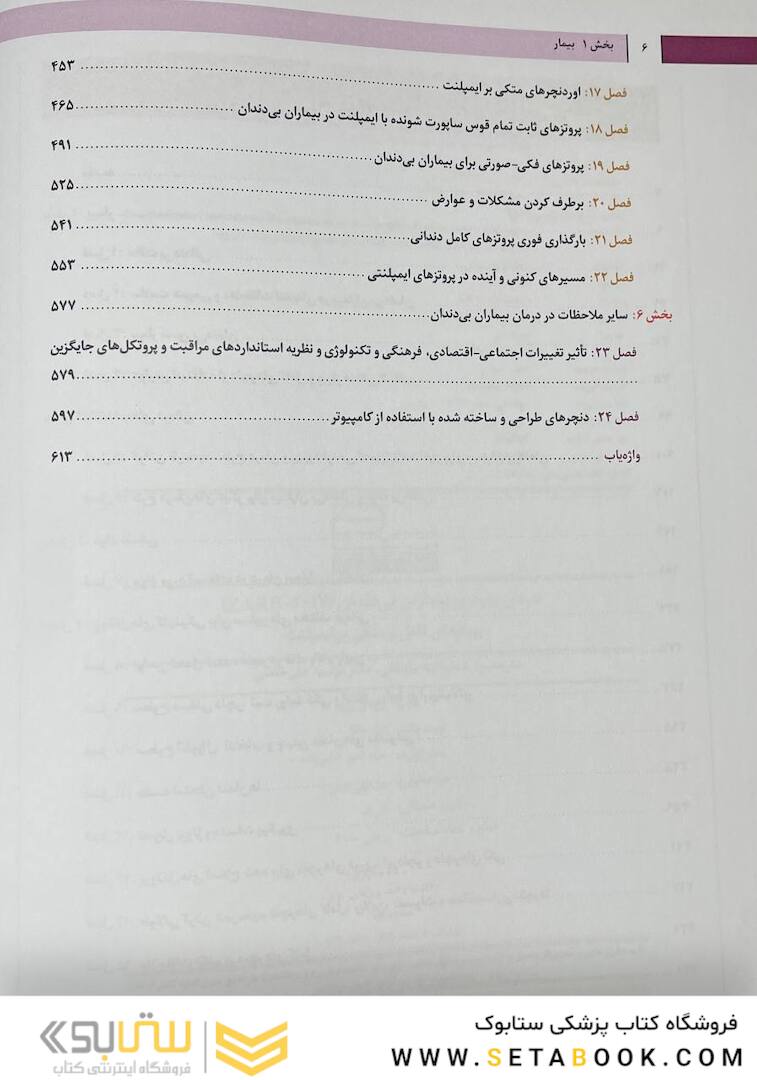 ۶ بخش ۱ بیمار
فصل ۱۷: اوردنچرهای متکی بر ایمپلنت ........ ۴۵۳
فصل ۱۸: پروتزهای ثابت تمام قوس ساپورت شونده با ایمپلنت در بیماران بی‌دندان ........ ۴۶۵
فصل ۱۹: پروتزهای فکی-صورتی برای بیماران بی‌دندان ........ ۴۹۱
فصل ۲۰: برطرف کردن مشکلات و عوارض ........ ۵۲۵
فصل ۲۱: بارگذاری فوری پروتزهای کامل دندانی ........ ۵۴۱
فصل ۲۲: مسیرهای کنونی و آینده در پروتزهای ایمپلنتی ........ ۵۵۳
بخش ۶: سایر ملاحظات در درمان بیماران بی‌دندان ........ ۵۷۷
فصل ۲۳: تأثیر تغییرات اجتماعی-اقتصادی، فرهنگی و تکنولوژی و نظریه استانداردهای مراقبت و پروتکل‌های جایگزین
........ ۵۷۹
فصل ۲۴: دنچرهای طراحی و ساخته شده با استفاده از کامپیوتر ........ ۵۹۷
واژه‌یاب ........ ۶۱۳
فروشگاه کتاب پزشکی ستابوک
WWW.SETABOOK.COM
ستابوک
فروشگاه اینترنتی کتاب